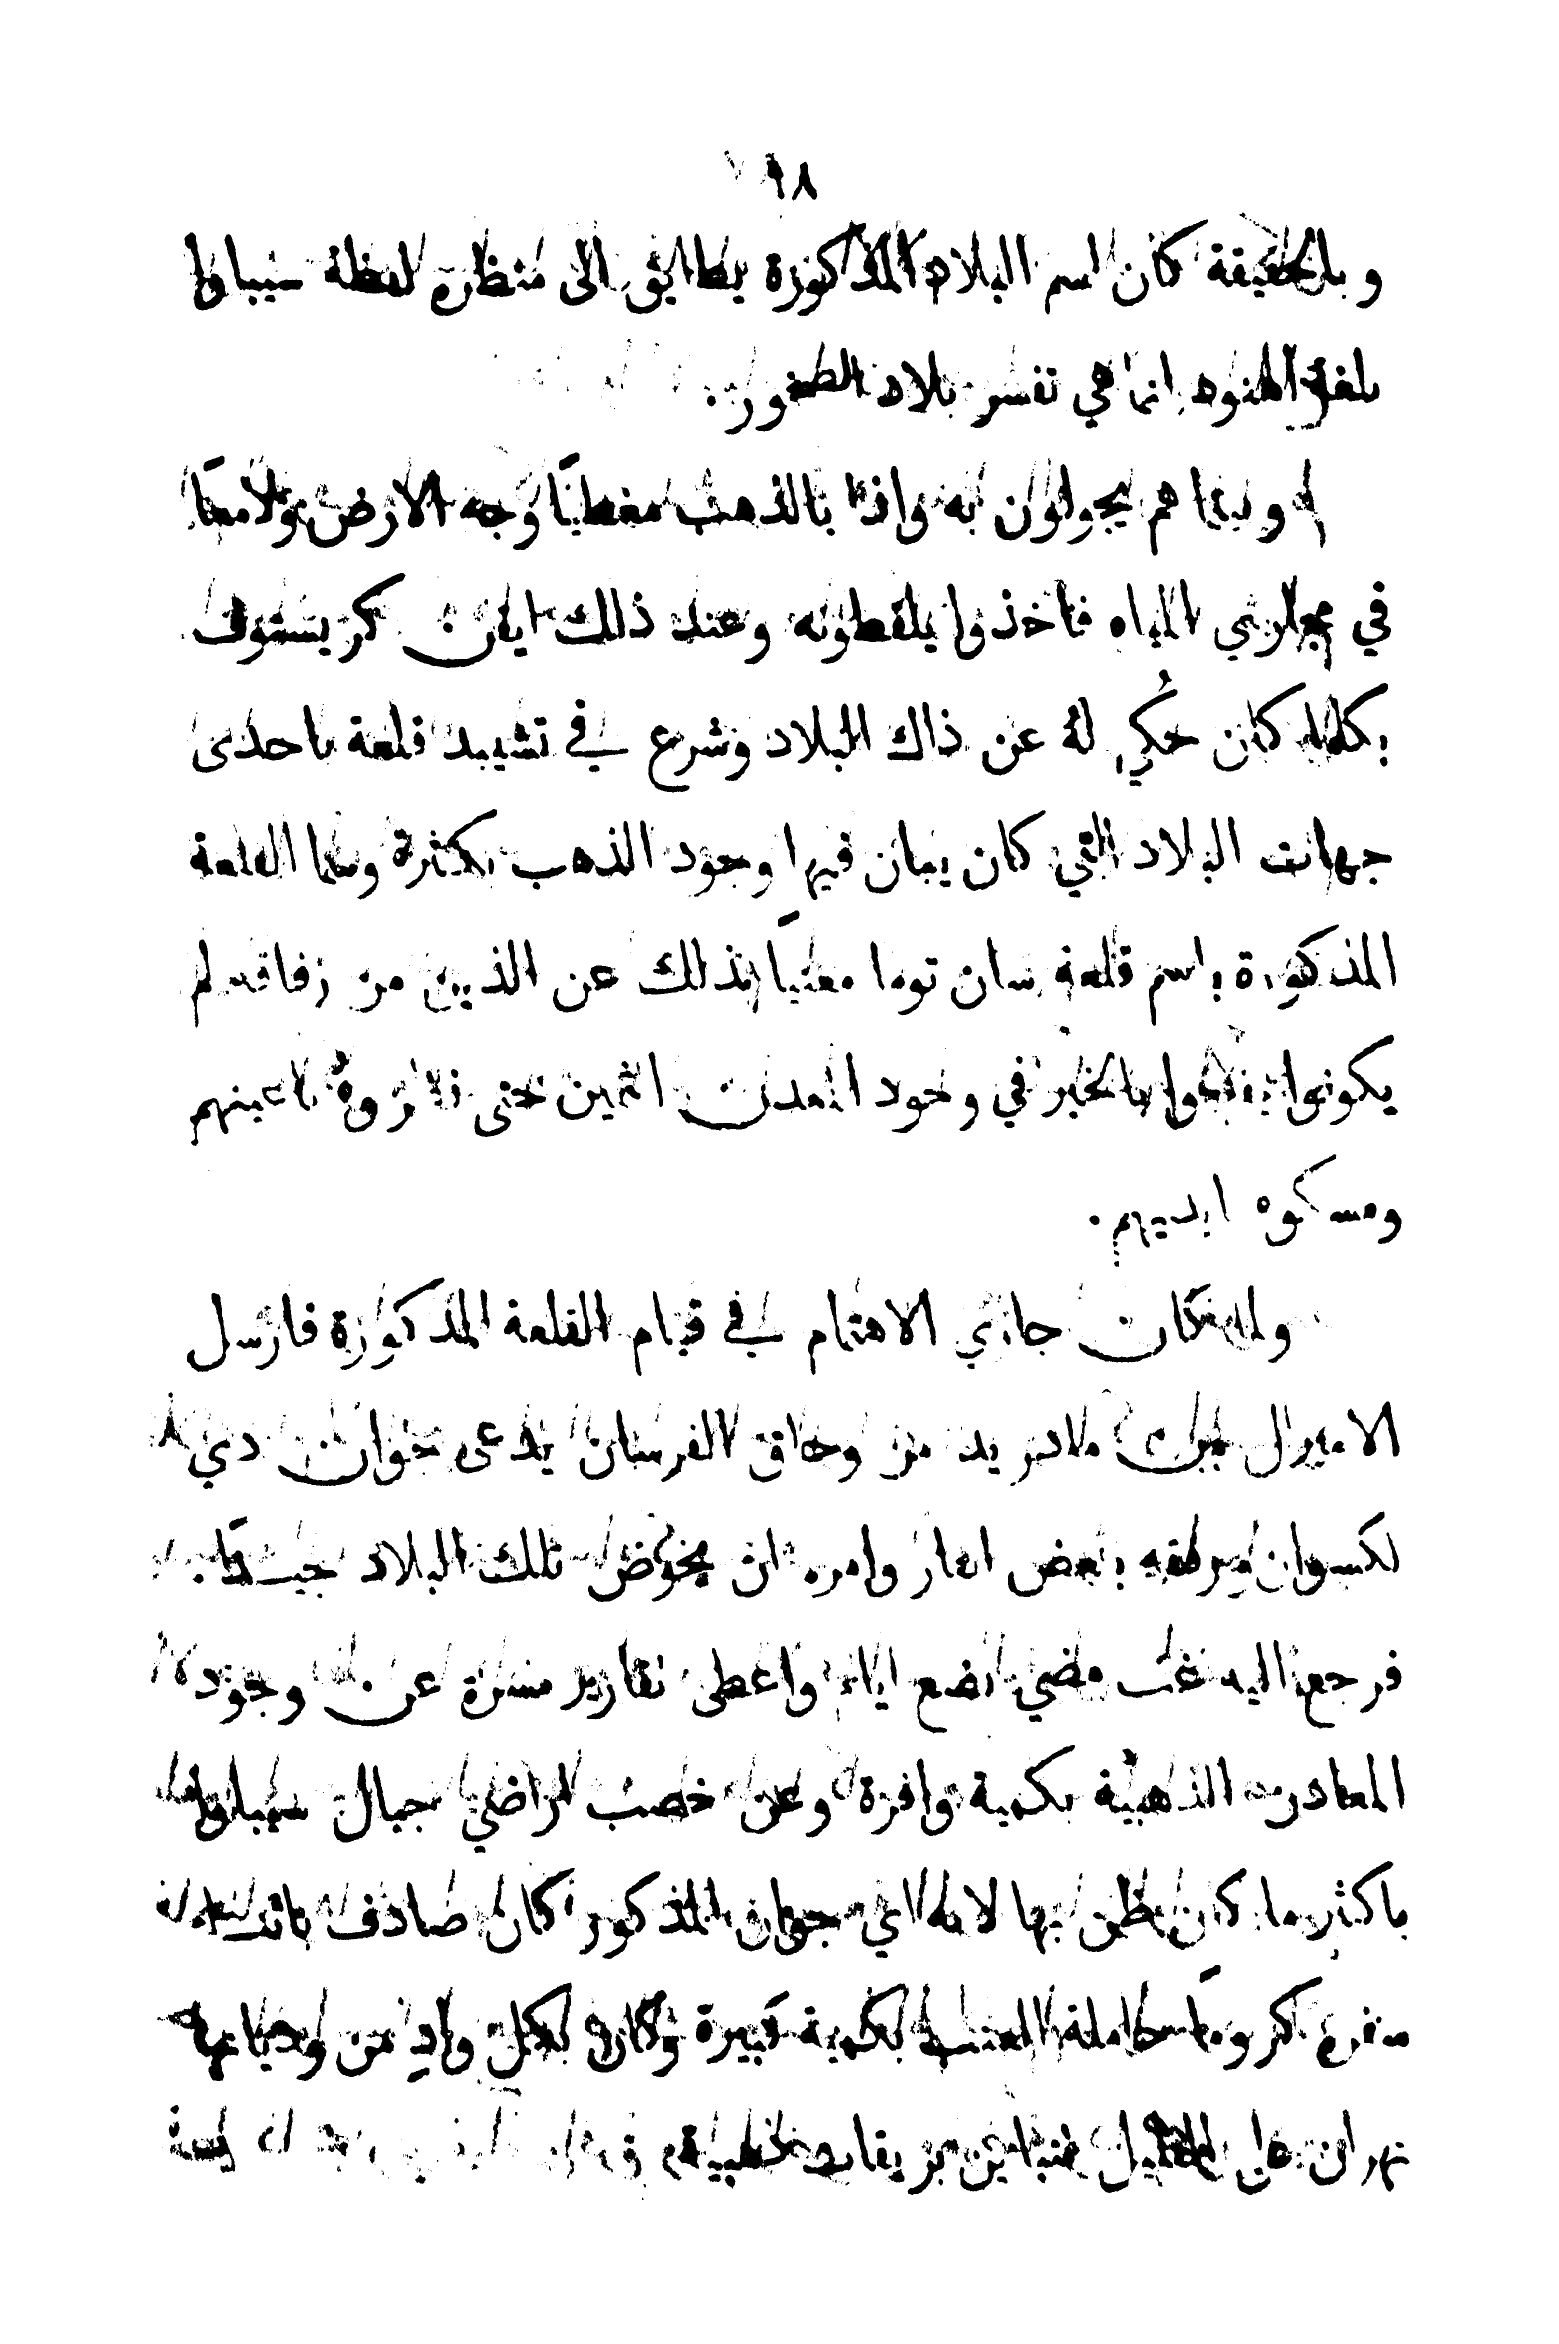 ٩٨
وبالحقيقة كان اسم البلاد المذكورة يطابق الى منظره لفظة سيباوا
بلغة الهنود انما هي تفسر بلاد الصخور.
وبينما هم يجولون به واذا بالذهب مغطيًا وجه الارض ولامعًا
في مجاري المياه فاخذوا يلقطونه وعند ذلك ايقن كريستوف
بكلما كان حُكي له عن ذاك البلاد وشرع في تشييد قلعة باحدى
جهات البلاد التي كان يبان فيها وجود الذهب بكثرة وسما القلعة
المذكورة باسم قلعة سان توما معنيًا بذلك عن الذين من رفاقه لم
يكونوا يقبلوا بالخبر في وجود المعدن الثمين حتى نظروهُ باعينهم
ومسكوه بايديهم.
ولما كان جاري الاهتمام في قيام القلعة المذكورة فارسل
الاميرال من مادريد من وجاق الفرسان يدعى جوان دي
لكسوان برفقه بعض انفار وامره ان يخوض تلك البلاد جيدًا.
فرجع اليه غب مضي بضع ايام واعطى تقارير مسرة عن وجود
المعادن الذهبية بكمية وافرة وعن خصب اراضي جبال سيباوا
باكثر ما كان يظن بها لانه اي جوان المذكور كان صادف
كرومًا حاملة العنب بكمية كبيرة وكان بكل وادٍ من وديانها
نهران